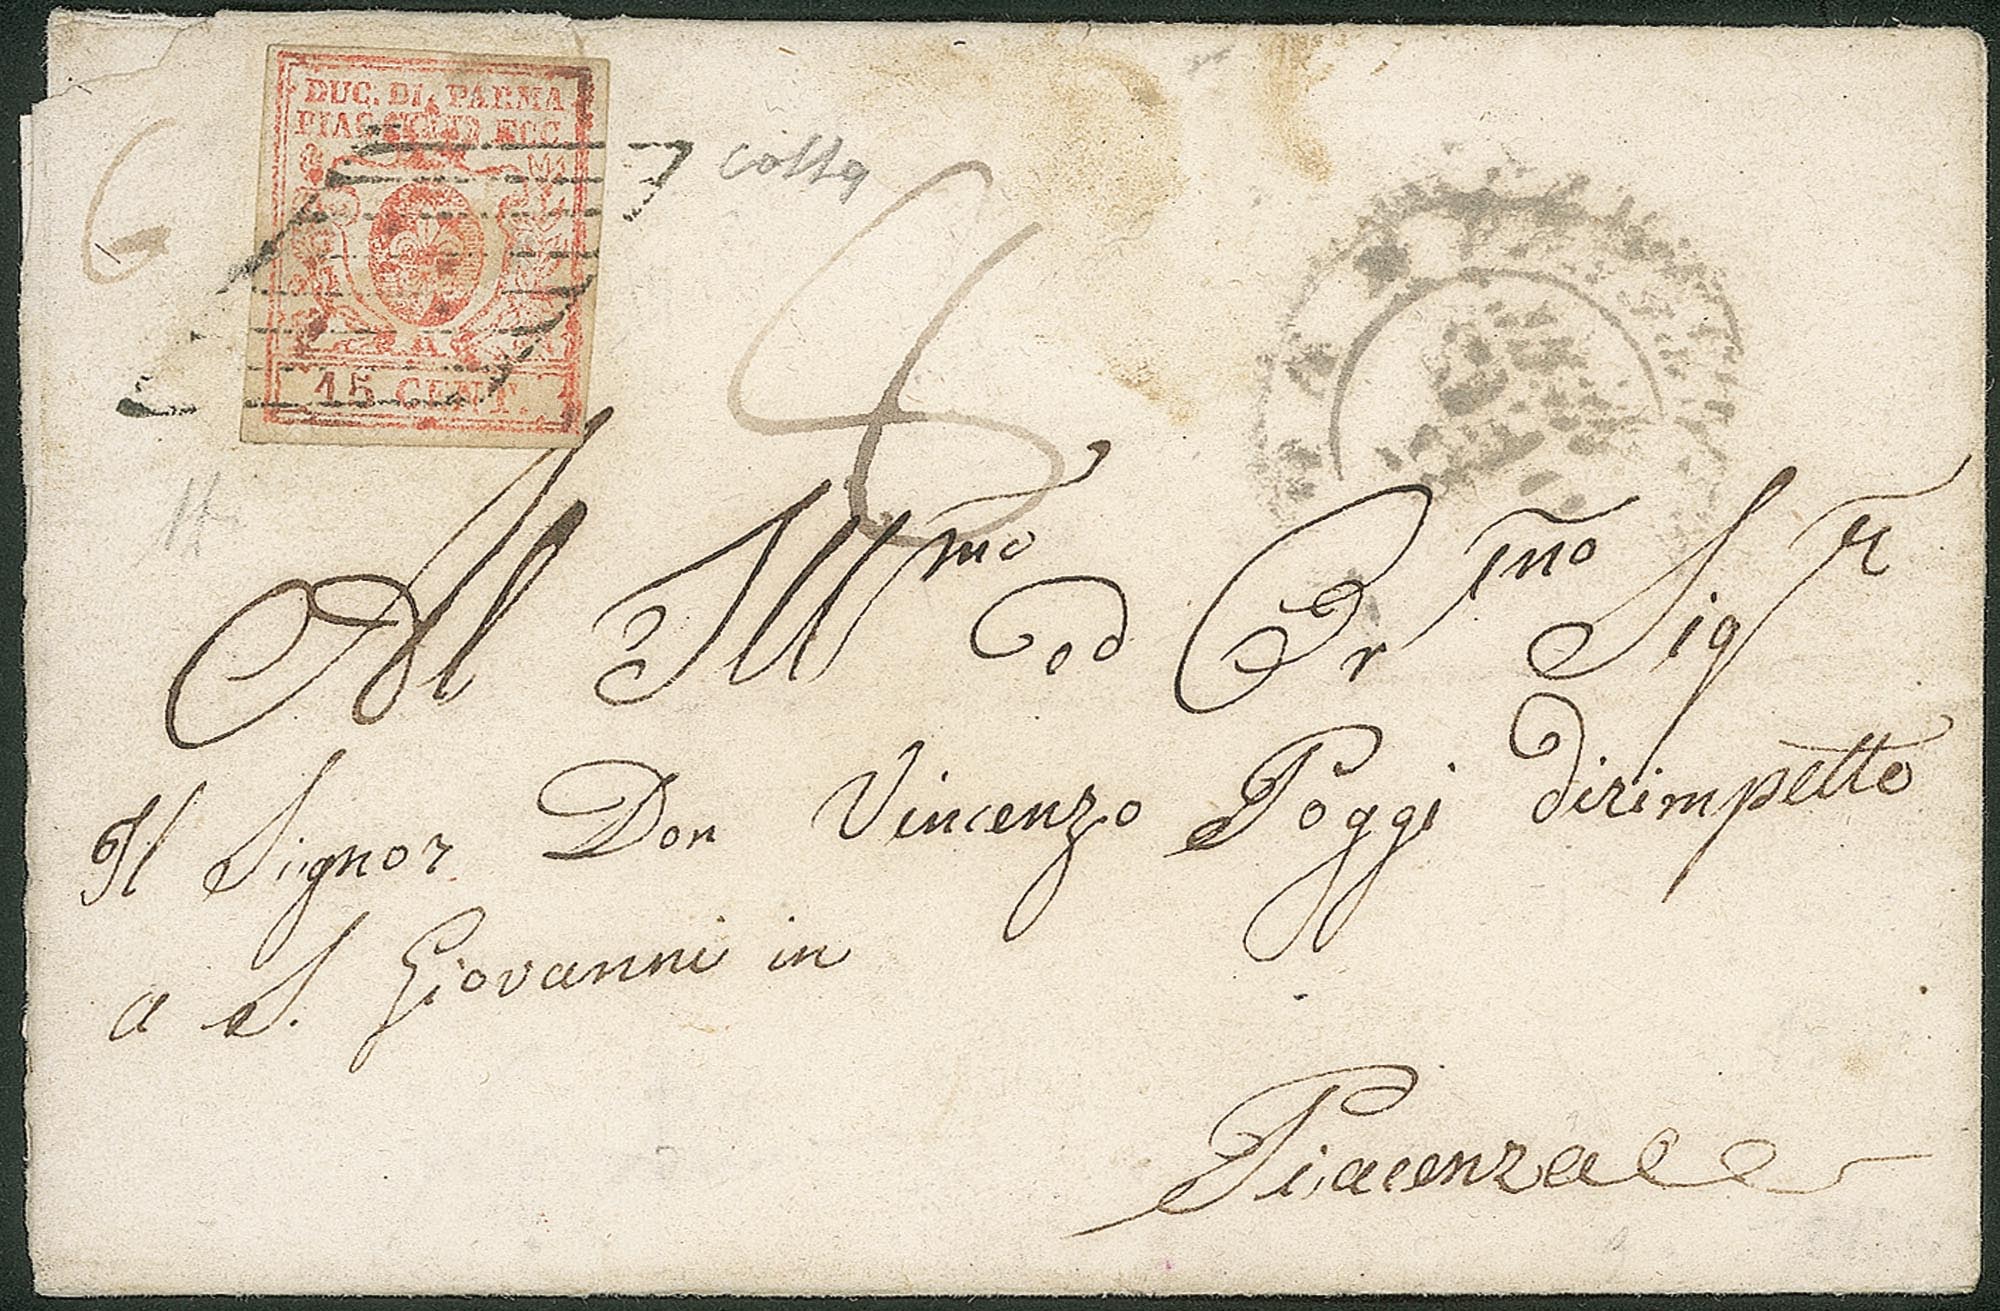 DUC. DI PARMA
PIAC. ECC.
15 CENT.
Al Ill.mo ed Pr.mo Sig.r
Il Signor Don Vincenzo Poggi dirimpetto
a S. Giovanni in
Piacenza